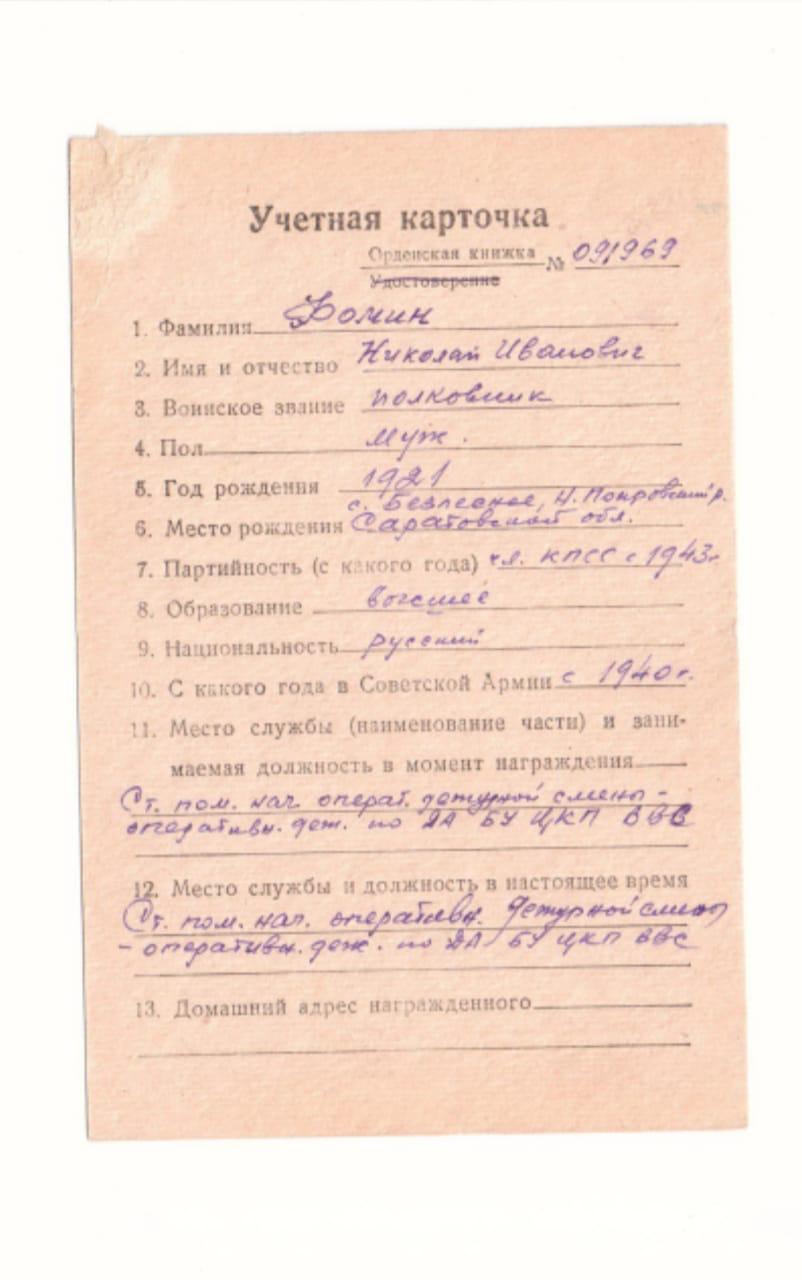 Учетная карточка
Орденская книжка № 091969
Удостоверение
1. Фамилия Фомин
2. Имя и отчество Николай Иванович
3. Воинское звание полковник
4. Пол муж.
5. Год рождения 1921
с. Безлесное, Н. Покровский р.
6. Место рождения Саратовской обл.
7. Партийность (с какого года) чл. КПСС с 1943г
8. Образование высшее
9. Национальность русский
10. С какого года в Советской Армии с 1940г.
11. Место службы (наименование части) и зани-
маемая должность в момент награждения
Ст. пом. нач. операт. дежурной смены -
оперативн. деж. по ДА БУ ЦКП ВВС
12. Место службы и должность в настоящее время
Ст. пом. нач. оперативн. дежурной смены
- оперативн. деж. по ДА БУ ЦКП ВВС
13. Домашний адрес награжденного